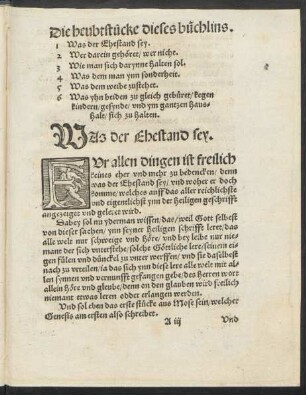 Die heubtstücke dieses büchlins.
1 Was der Ehestand sey.
2 Wer darein gehöret/ wer nicht.
3 Wie man sich darynne halten sol.
4 Was dem man ynn sonderheit.
5 Was dem weibe zustehet.
6 Was yhn beiden zu gleich gebüret/ kegen
kindern/ gesynde/ vnd ym gantzen haus-
halt/ sich zu halten.
WAs der Ehestand sey.
FVr allen dingen ist freilich
keines eher vnd mehr zu bedencken/ denn
was der Ehestand sey/ vnd woher er doch
komme/ welches auff das aller reichlichste
vnd eigentlichst ynn der Heiligen geschrifft
angezeiget vnd geleret wird.
Dabey sol nu yderman wissen/ das/ weil Gott selbest
von dieser sachen/ ynn seyner Heiligen schrifft leret/ das
alle welt nur schweige vnd Höre/ vnd bey leibe nur nie-
mant der sich vnterstehe/ solche Göttliche lere/ seinem ei-
gen fülen vnd dünckel zu vnter werffen/ vnd sie daselbest
nach zu vrteilen/ ia das sich ynn diese lere alle welt mit al-
len synnen vnd vernunfft gefangen gebe/ des Herren wort
allein Höre vnd gleube/ denn on den glauben wird freilich
niemant etwas leren odder erlangen werden.
Vnd sol eben das erste stücke aus Mose sein/ welcher
Genesis am ersten also schreibet.
A iij Vnd